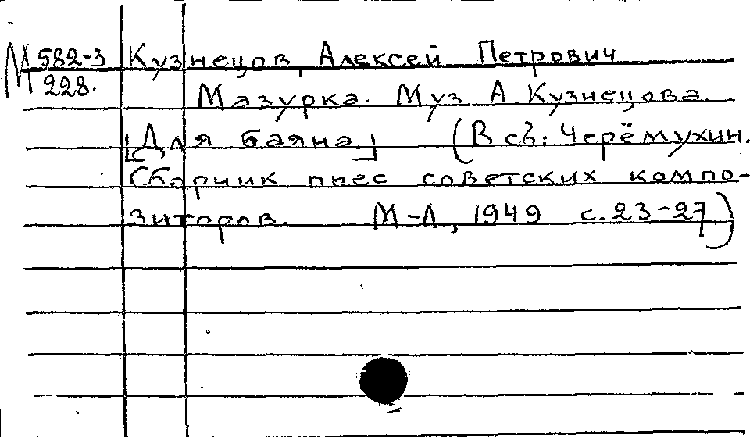 М 582-3 Кузнецов, Алексей Петрович
228.
Мазурка. Муз А. Кузнецова.
[Для баяна.] (В сб: Черёмухин.
Сборник пьес советских компо-
зиторов. М-Л, 1949 с. 23-27)